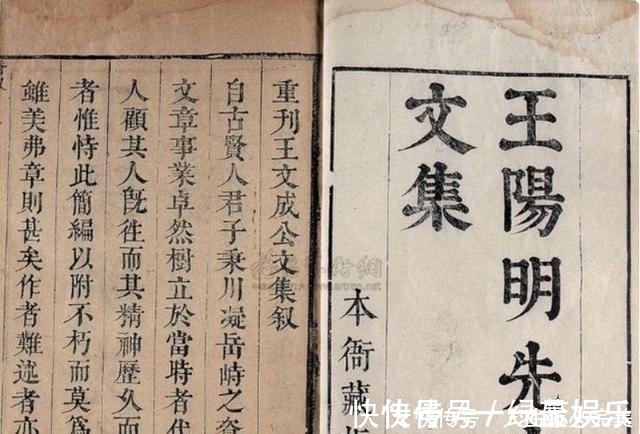 王陽明先
文集
本衙藏
重刊王文成公文集叙
自古賢人君子秉川凝岳峙之
文章事業卓然樹立於當時者代
人顧其人旣徃而其精神歷久而
者惟恃此簡編以附不朽而莫爲
雖美弗章則甚矣作者難述者亦
快传号 / 娱乐